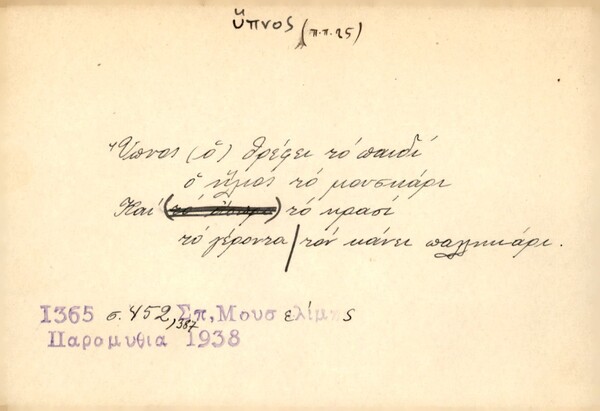 ὕπνος (π.π. 25)
Ὕπνος (ὁ) θρέφει τό παιδί
ὁ ἥλιος τό μουσκάρι
Καί () τό κρασί
τό γέροντα / τόν κάνει παλληκάρι.
1365 σ. 452, 387 Σπ. Μουσελίμης
Παρομυθια 1938